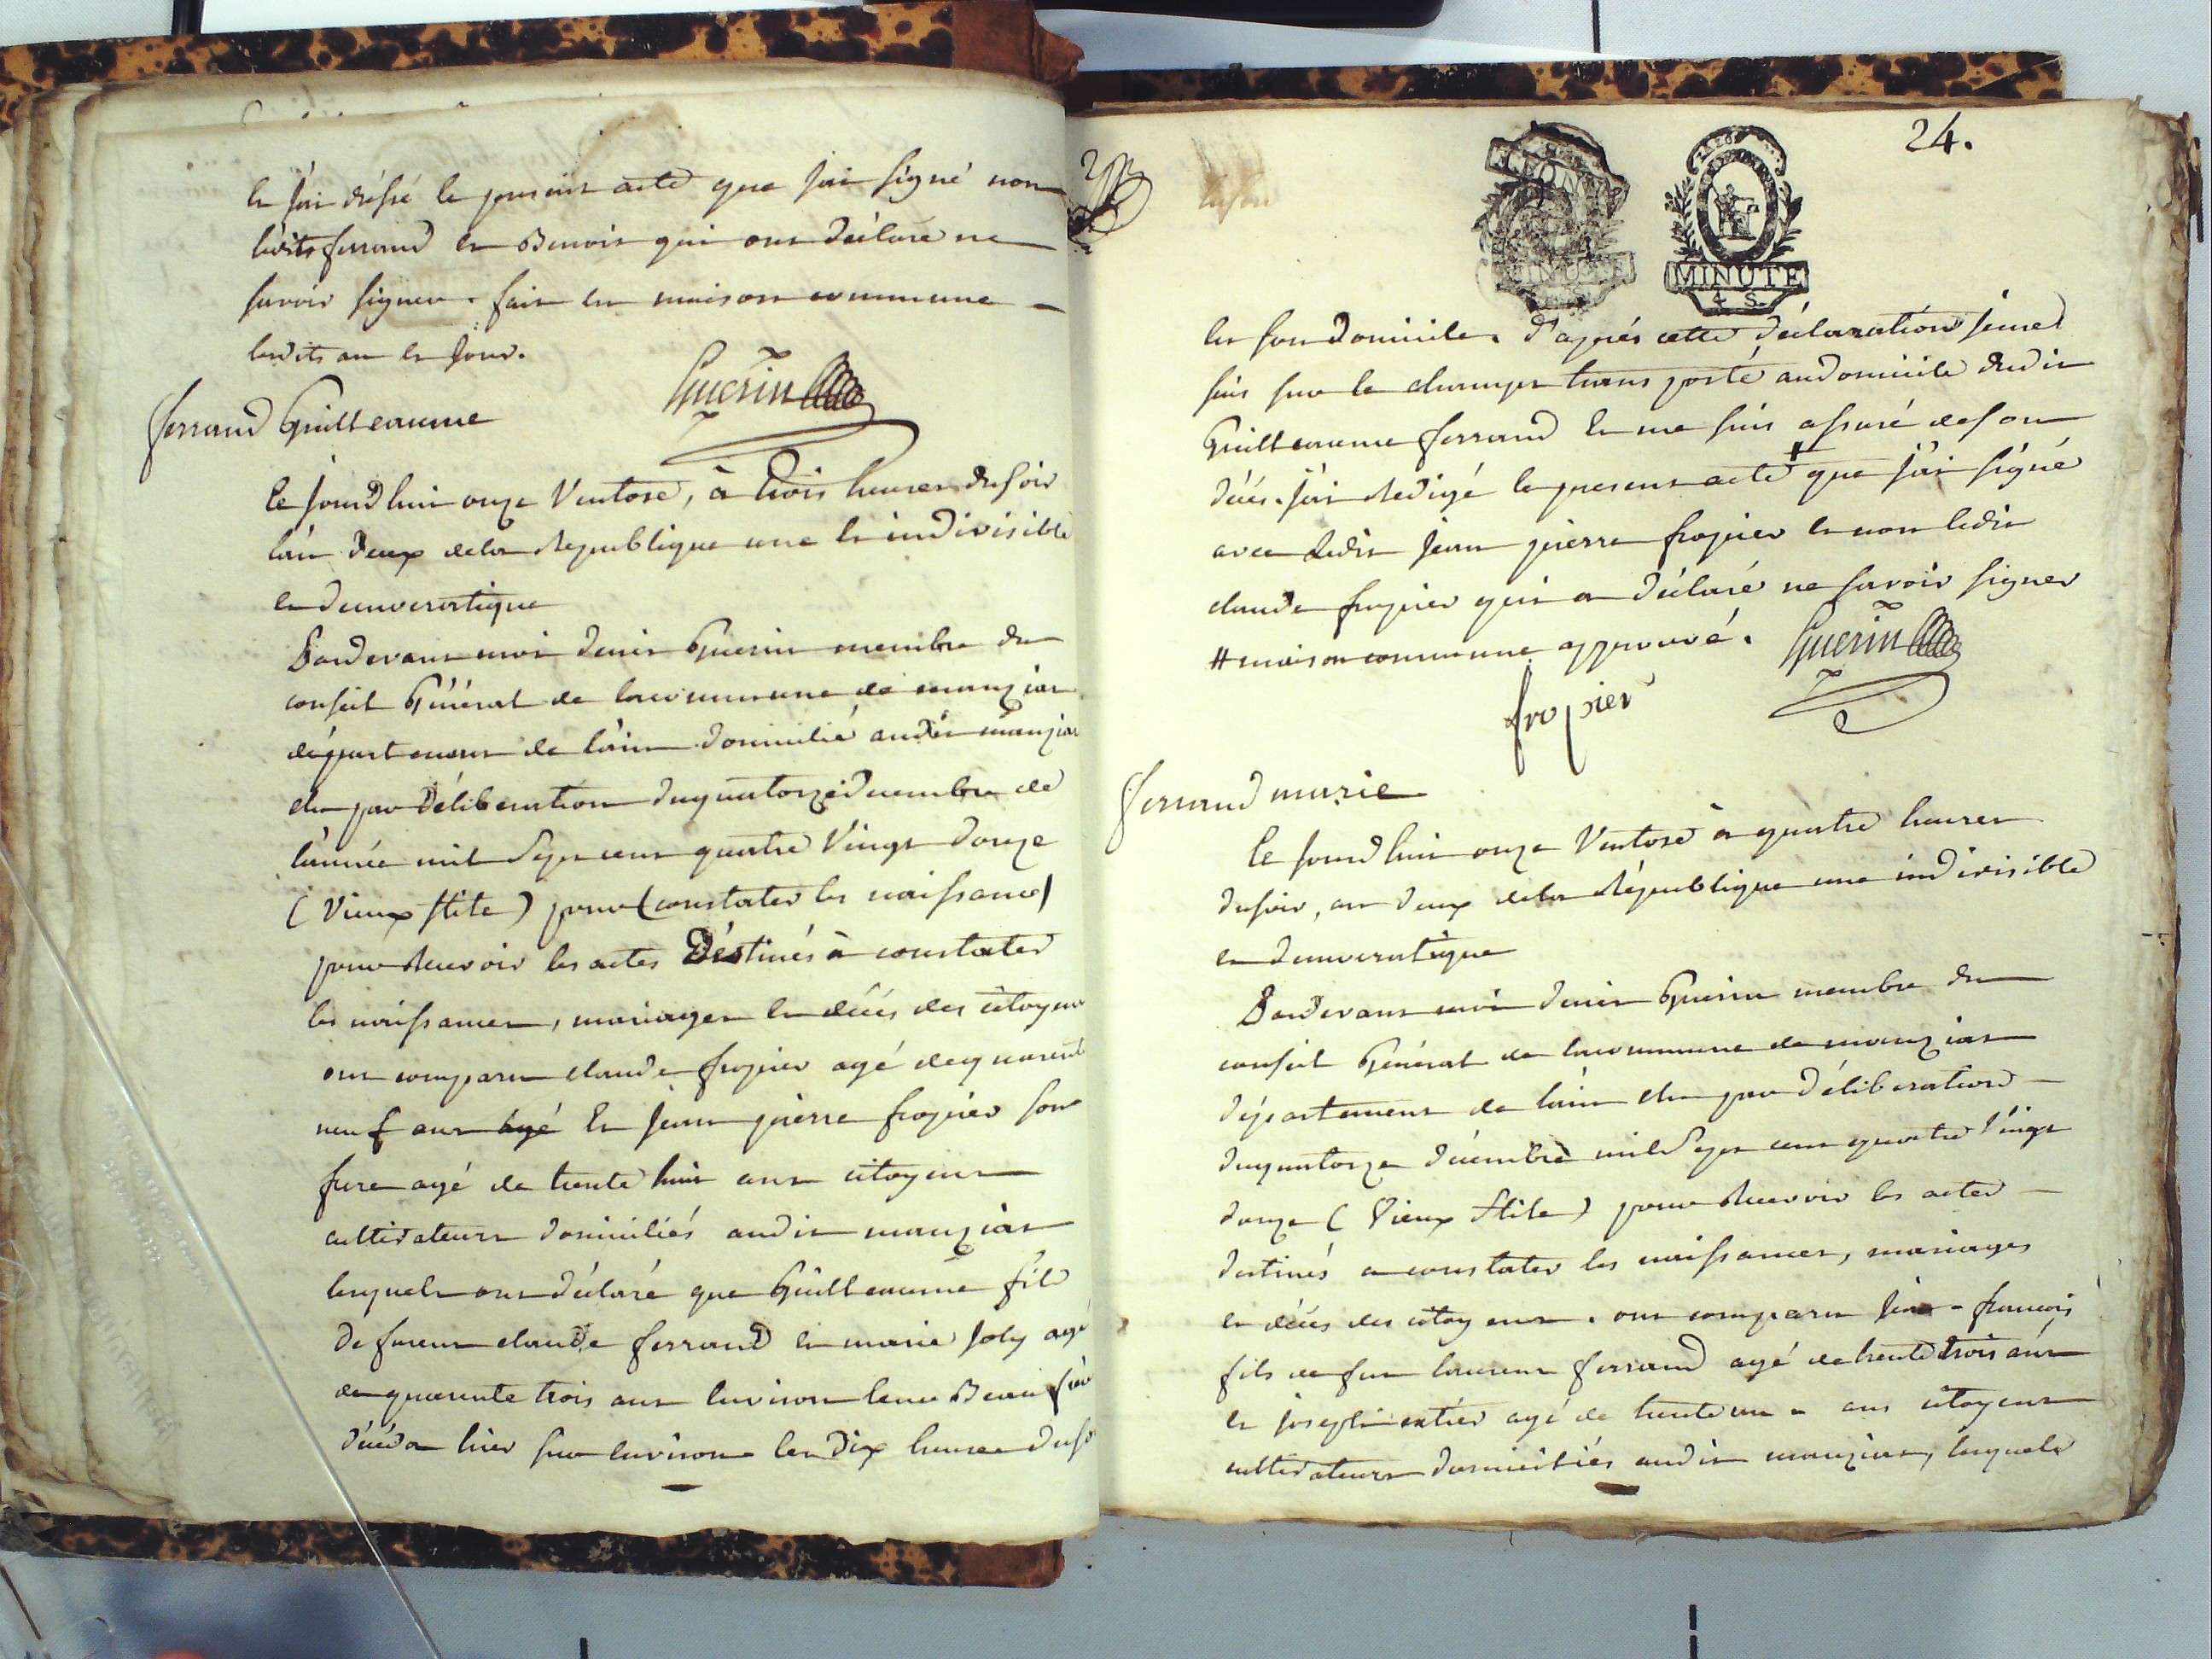 et j'ai dréssé le present acte que j'ai signé non
lesdits ferrand et Benoit qui ont déclaré ne
savoir signer. fait en maison commune
lesdits an et jour.
Guerin
ferrand Guilleaume
Ce jourd'hui onze Ventose, à trois heures du soir
l'an deux de la Republique une et indivisible
et democratique
Pardevant moi denis Guerin membre du
conseil Général de la commune de manziat
département de l'ain domicilié audit manziat
elu par déliberation du quatorze décembre de
l'année mil sept cent quatre Vingt douze
(Vieux stile) pour (constater les naissances)
pour recevoir les actes déstinés à constater
les naissances, mariages et décés des citoyens
ont comparu claude fropier agé de quarente
neuf ans et jean pierre fropier son
frere agé de trente huit ans citoyens
cultivateurs domiciliés audit manziat
lesquels ont déclaré que Guilleaume fils
de claude ferrand et marie joly agé
de quarente trois ans environ leur Beau
décéda hier sur environ les dix heures du
24.
MINUTE
MINUTE
4 S.
en son domicile. d'aprés cette déclaration je me
suis sur le champ transporté au domicile dudit
Guilleaume ferrand et me suis assuré de son
décés. j'ai redigé le present acte que j'ai signé
avec ledit jean pierre fropier et non ledit
claude fropier qui a déclaré ne savoir signer
# maison commune approuvé. Guerin
fropier
ferrand marie
Ce jourd'hui onze Ventose à quatre heures
du soir, an deux de la République une indivisible
et democratique
Pardevant moi denis Guerin membre du
conseil Général de la commune de manziat
département de l'ain elu par déliberation
du quatorze décembre mil sept cent quatre Vingt
douze (Vieux stile) pour recevoir les actes
destinés a constater les naissances, mariages
et décés des citoyens. ont comparu françois
fils de feu laurent ferrand agé de trente trois ans
et joseph agé de trente un ans citoyens
cultivateurs domiciliés audit manziat, lesquels